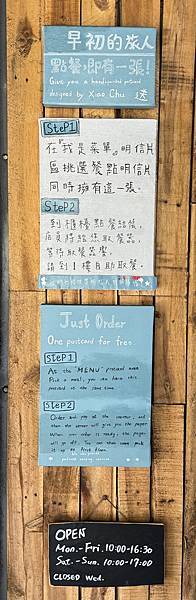 早初的旅人
點餐,即有一張!
Give you a handpainted postcard
designed by Xiao Chu
Step1
在『我是菜單』明信片
區挑選餐點明信片
同時擁有這一張.
Step2
到櫃檯點餐結帳,
店員將給您取餐器,
等待取餐器響,
請到1樓自助取餐.
Just Order
One postcard for free
Step1
At the "MENU" postcard area
Pick a meal, you can have this
postcard at the same time.
Step2
Order and pay at the counter, and
then the server will give you the pager.
When your order is ready, the pager
will go off. You can then come pick
it up by first floor.
OPEN
Mon.-Fri. 10:00-16:30
Sat.-Sun. 10:00-17:00
CLOSED Wed.